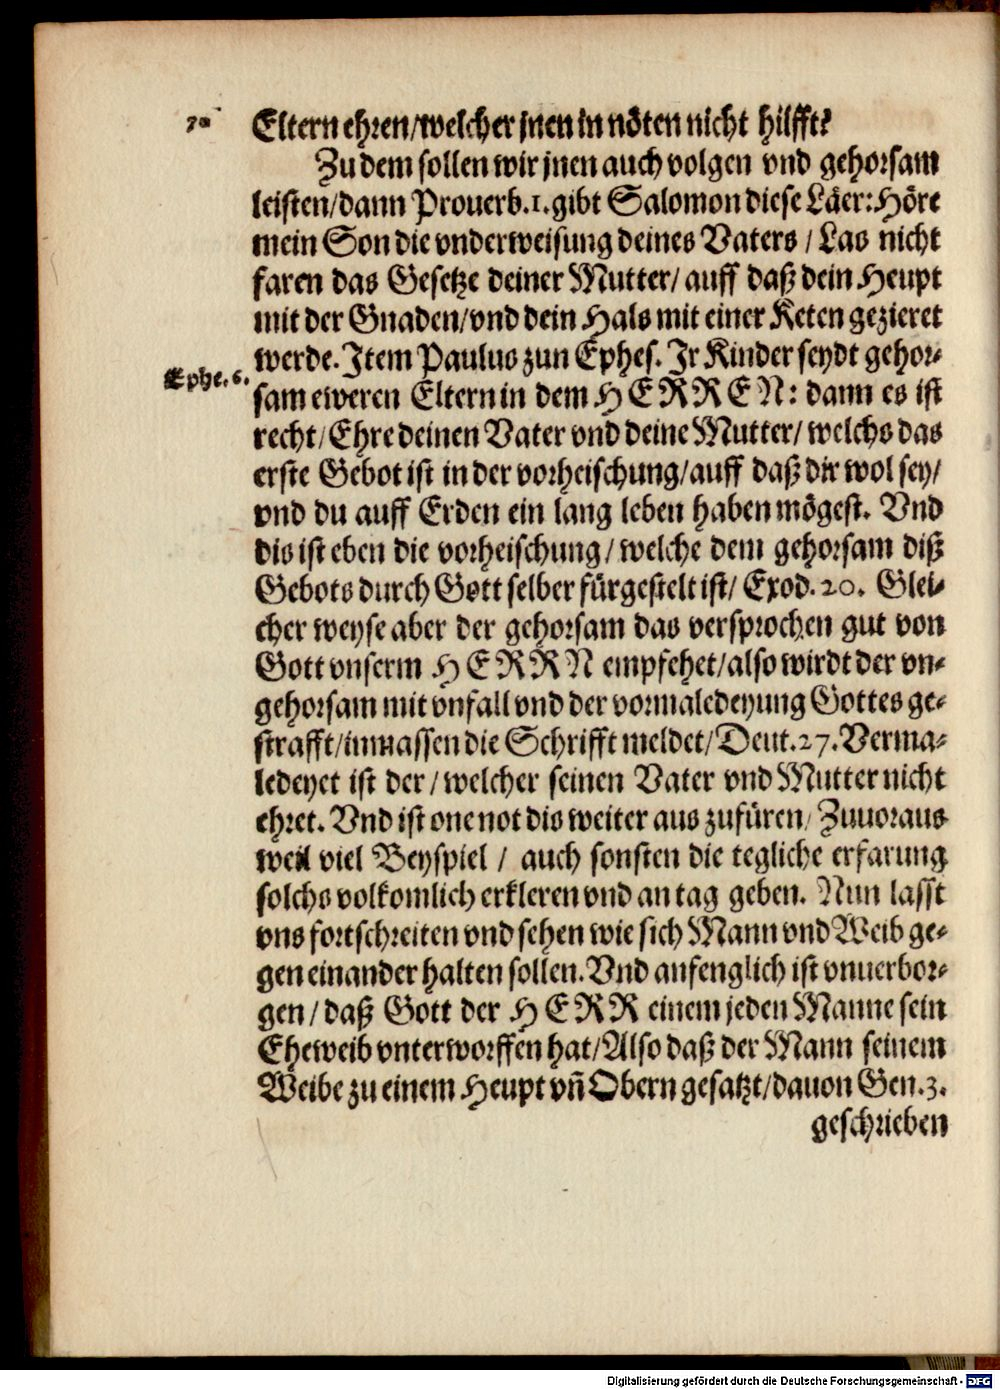 Eltern ehren/welcher jnen in nöten nicht hilfft?
Zu dem sollen wir jnen auch volgen vnd gehorsam
leisten/dann Prouerb.1.gibt Salomon diese Läer: Höre
mein Son die vnderweisung deines Vaters / Las nicht
faren das Gesetze deiner Mutter/ auff daß dein Heupt
mit der Gnaden/vnd dein Hals mit einer Keten gezieret
werde. Item Paulus zun Ephes. Jr Kinder seydt gehor-
Ephe.6.
sam eweren Eltern in dem HERREN: dann es ist
recht/Ehre deinen Vater vnd deine Mutter/ welchs das
erste Gebot ist in der vorheischung/auff daß dir wol sey/
vnd du auff Erden ein lang leben haben mögest. Vnd
dis ist eben die vorheischung/ welche dem gehorsam diß
Gebots durch Gott selber fürgestelt ist/ Exod. 20. Glei-
cher weyse aber der gehorsam das versprochen gut von
Gott vnserm HERRN empfehet/also wirdt der vn-
gehorsam mit vnfall vnd der vormaledeyung Gottes ge-
strafft/inmassen die Schrifft meldet/Deut.27.Verma-
ledeyet ist der/ welcher seinen Vater vnd Mutter nicht
ehret. Vnd ist one not dis weiter aus zufüren/ Zuuoraus
weil viel Beyspiel / auch sonsten die tegliche erfarung
solchs volkomlich erkleren vnd an tag geben. Nun lasst
vns fortschreiten vnd sehen wie sich Mann vnd Weib ge-
gen einander halten sollen. Vnd anfenglich ist vnuerbor-
gen/ daß Gott der HERR einem jeden Manne sein
Eheweib vnterworffen hat/Also daß der Mann seinem
Weibe zu einem Heupt vñ Obern gesatzt/dauon Gen.3.
geschrieben
Digitalisierung gefördert durch die Deutsche Forschungsgemeinschaft - DFG